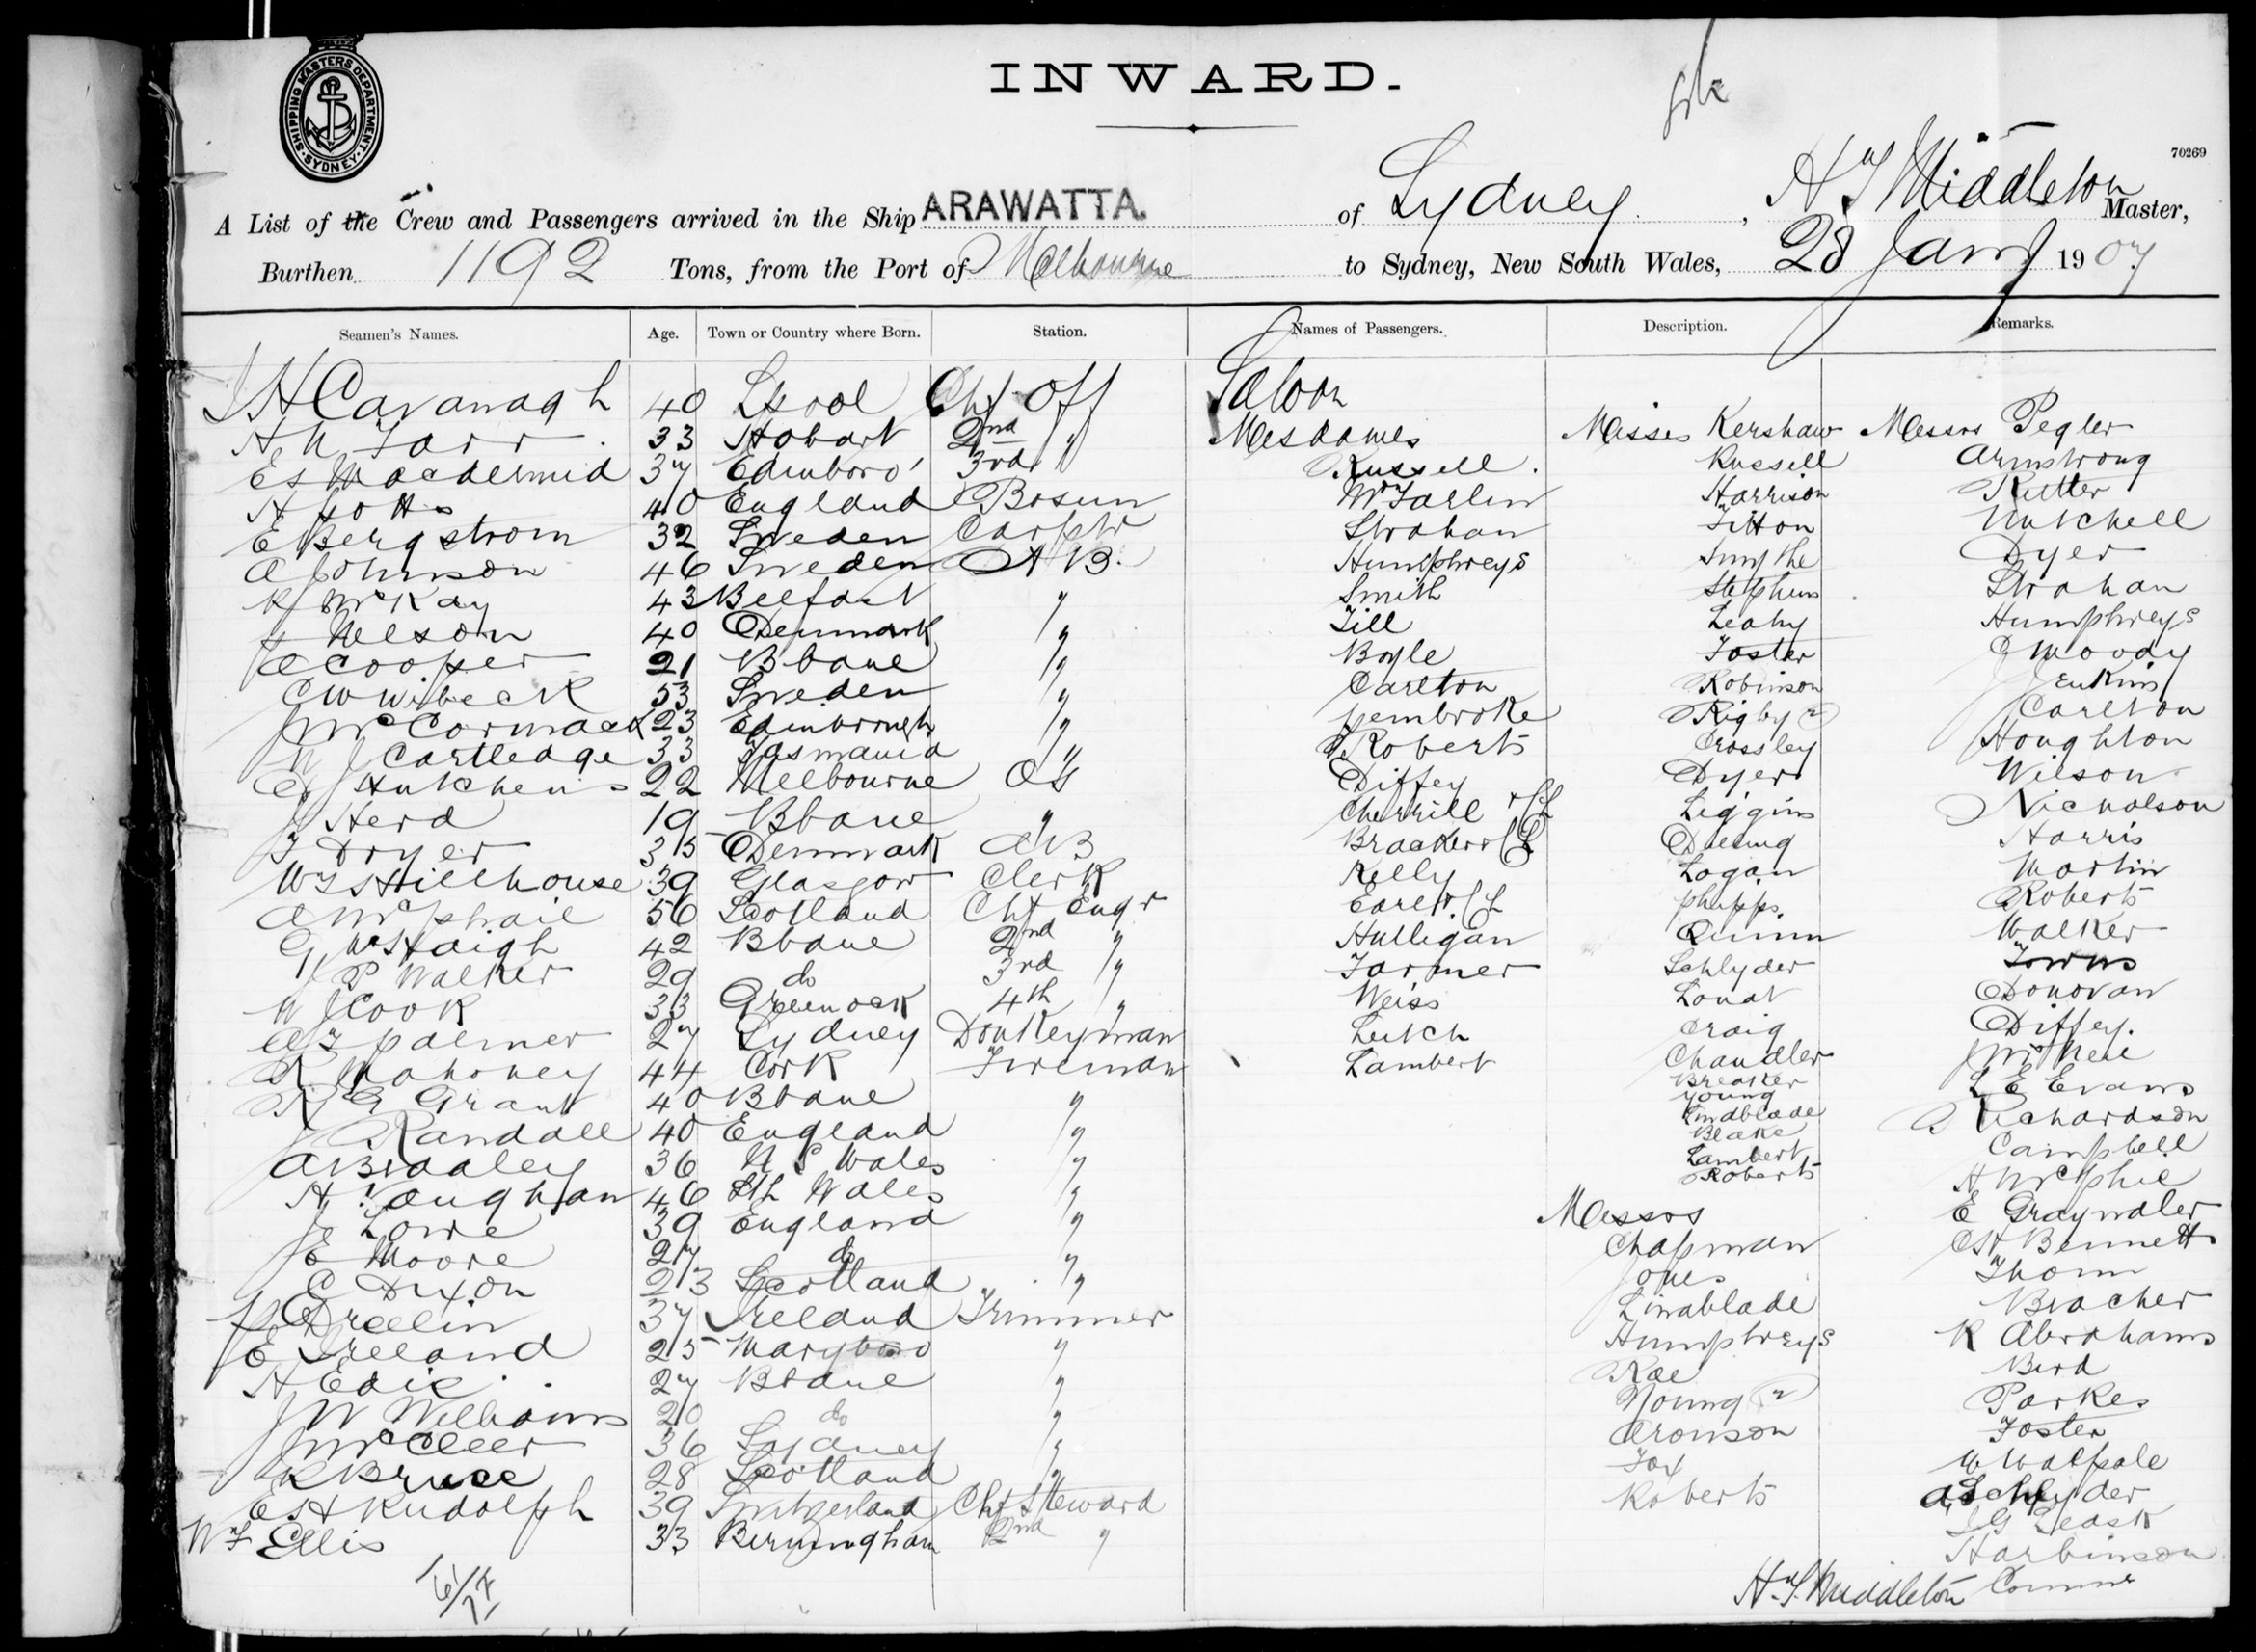 INWARD.
SHIPPING MASTERS DEPARTMENT. SYDNEY.
70269
A List of the Crew and Passengers arrived in the Ship ARAWATTA. of Sydney, Hy T Middleton Master,
Burthen 1192 Tons, from the Port of Melbourne to Sydney, New South Wales, 28 Jany 1907
Seamen's Names. Age. Town or Country where Born. Station. Names of Passengers. Description. Remarks.
J H Cavanagh 40 L'pool Chf Off
H N Farr 33 Hobart 2nd "
E S Macdermid 37 Edinboro' 3rd "
H 40 England Bosun
E Bergstrom 32 Sweden Carptr
A Johnson 46 Sweden AB.
R McKay 43 Belfast "
Nelson 40 Denmark "
A Cooper 21 Bbane "
C W Wibeck 53 Sweden "
J McCormack 23 Edinbrough "
N J Cartledge 33 Tasmania "
Hutchens 22 Melbourne OS
J Herd 19 Bbane "
F Dryer 35 Denmark AB
W S Hillhouse 39 Glasgow Clerk
A McPhail 56 Scotland Chf Engr
G Wm Haigh 42 Bbane 2nd "
J P Walker 29 do 3rd "
W J Cook 33 Greenock 4th "
A F Palmer 27 Sydney Donkeyman
R Mahoney 44 Cork Fireman
Grant 40 Bbane "
J Randall 40 England "
A Bradley 36 N S Wales "
H Vaughan 46 Sth Wales "
J Lowe 39 England "
E Moore 27 do "
C Dixon 23 Scotland "
Breelin 37 Ireland Trimmer
E Ireland 25 Maryboro "
H Edie 27 Bbane "
J W Williams 20 do "
J McCleer 36 Sydney "
R Bruce 28 Scotland "
E H Rudolph 39 Switzerland Chf Steward
W F Ellis 33 Birmingham 2nd "
Saloon
Mesdames
Russell.
McFarlin
Strahan
Humphreys
Smith
Till
Boyle
Carlton
Pembroke
Roberts
Diffey
Cherrill
Bracker
Kelly
Earl
Hulligan
Farmer
Weiss
Leitch
Lambert
Misses Kershaw
Russell
Harrison
Fitton
Smythe
Stephens
Leahy
Foster
Robinson
Rigby 2
Crossley
Dyer
Liggins
Logan
Phipps.
Quinn
Schlyder
Craig
Chandler
Breaker
Young
Lindblade
Blake
Lambert
Roberts
Messrs
Chapman
Jones
Lindblade
Humphreys
Rae
Young 2
Aronson
Fox
Roberts
Messrs Pegler
Armstrong
Rutter
Mitchell
Dyer
Strahan
Humphreys
J Moody
J Jenkins
Carlton
Houghton
Wilson
Nicholson
Harris
Martin
Roberts
Walker
Towns
Donovan
Diffey.
J McNeil
L E Evans
Richardson
Campbell
H McPhie
E Grayndler
Bennett
Thom
Bracher
R Abrahams
Bird
Parkes
Foster
W Walpole
A Schlyder
J G Leask
Harbinson
Hy T. Middleton